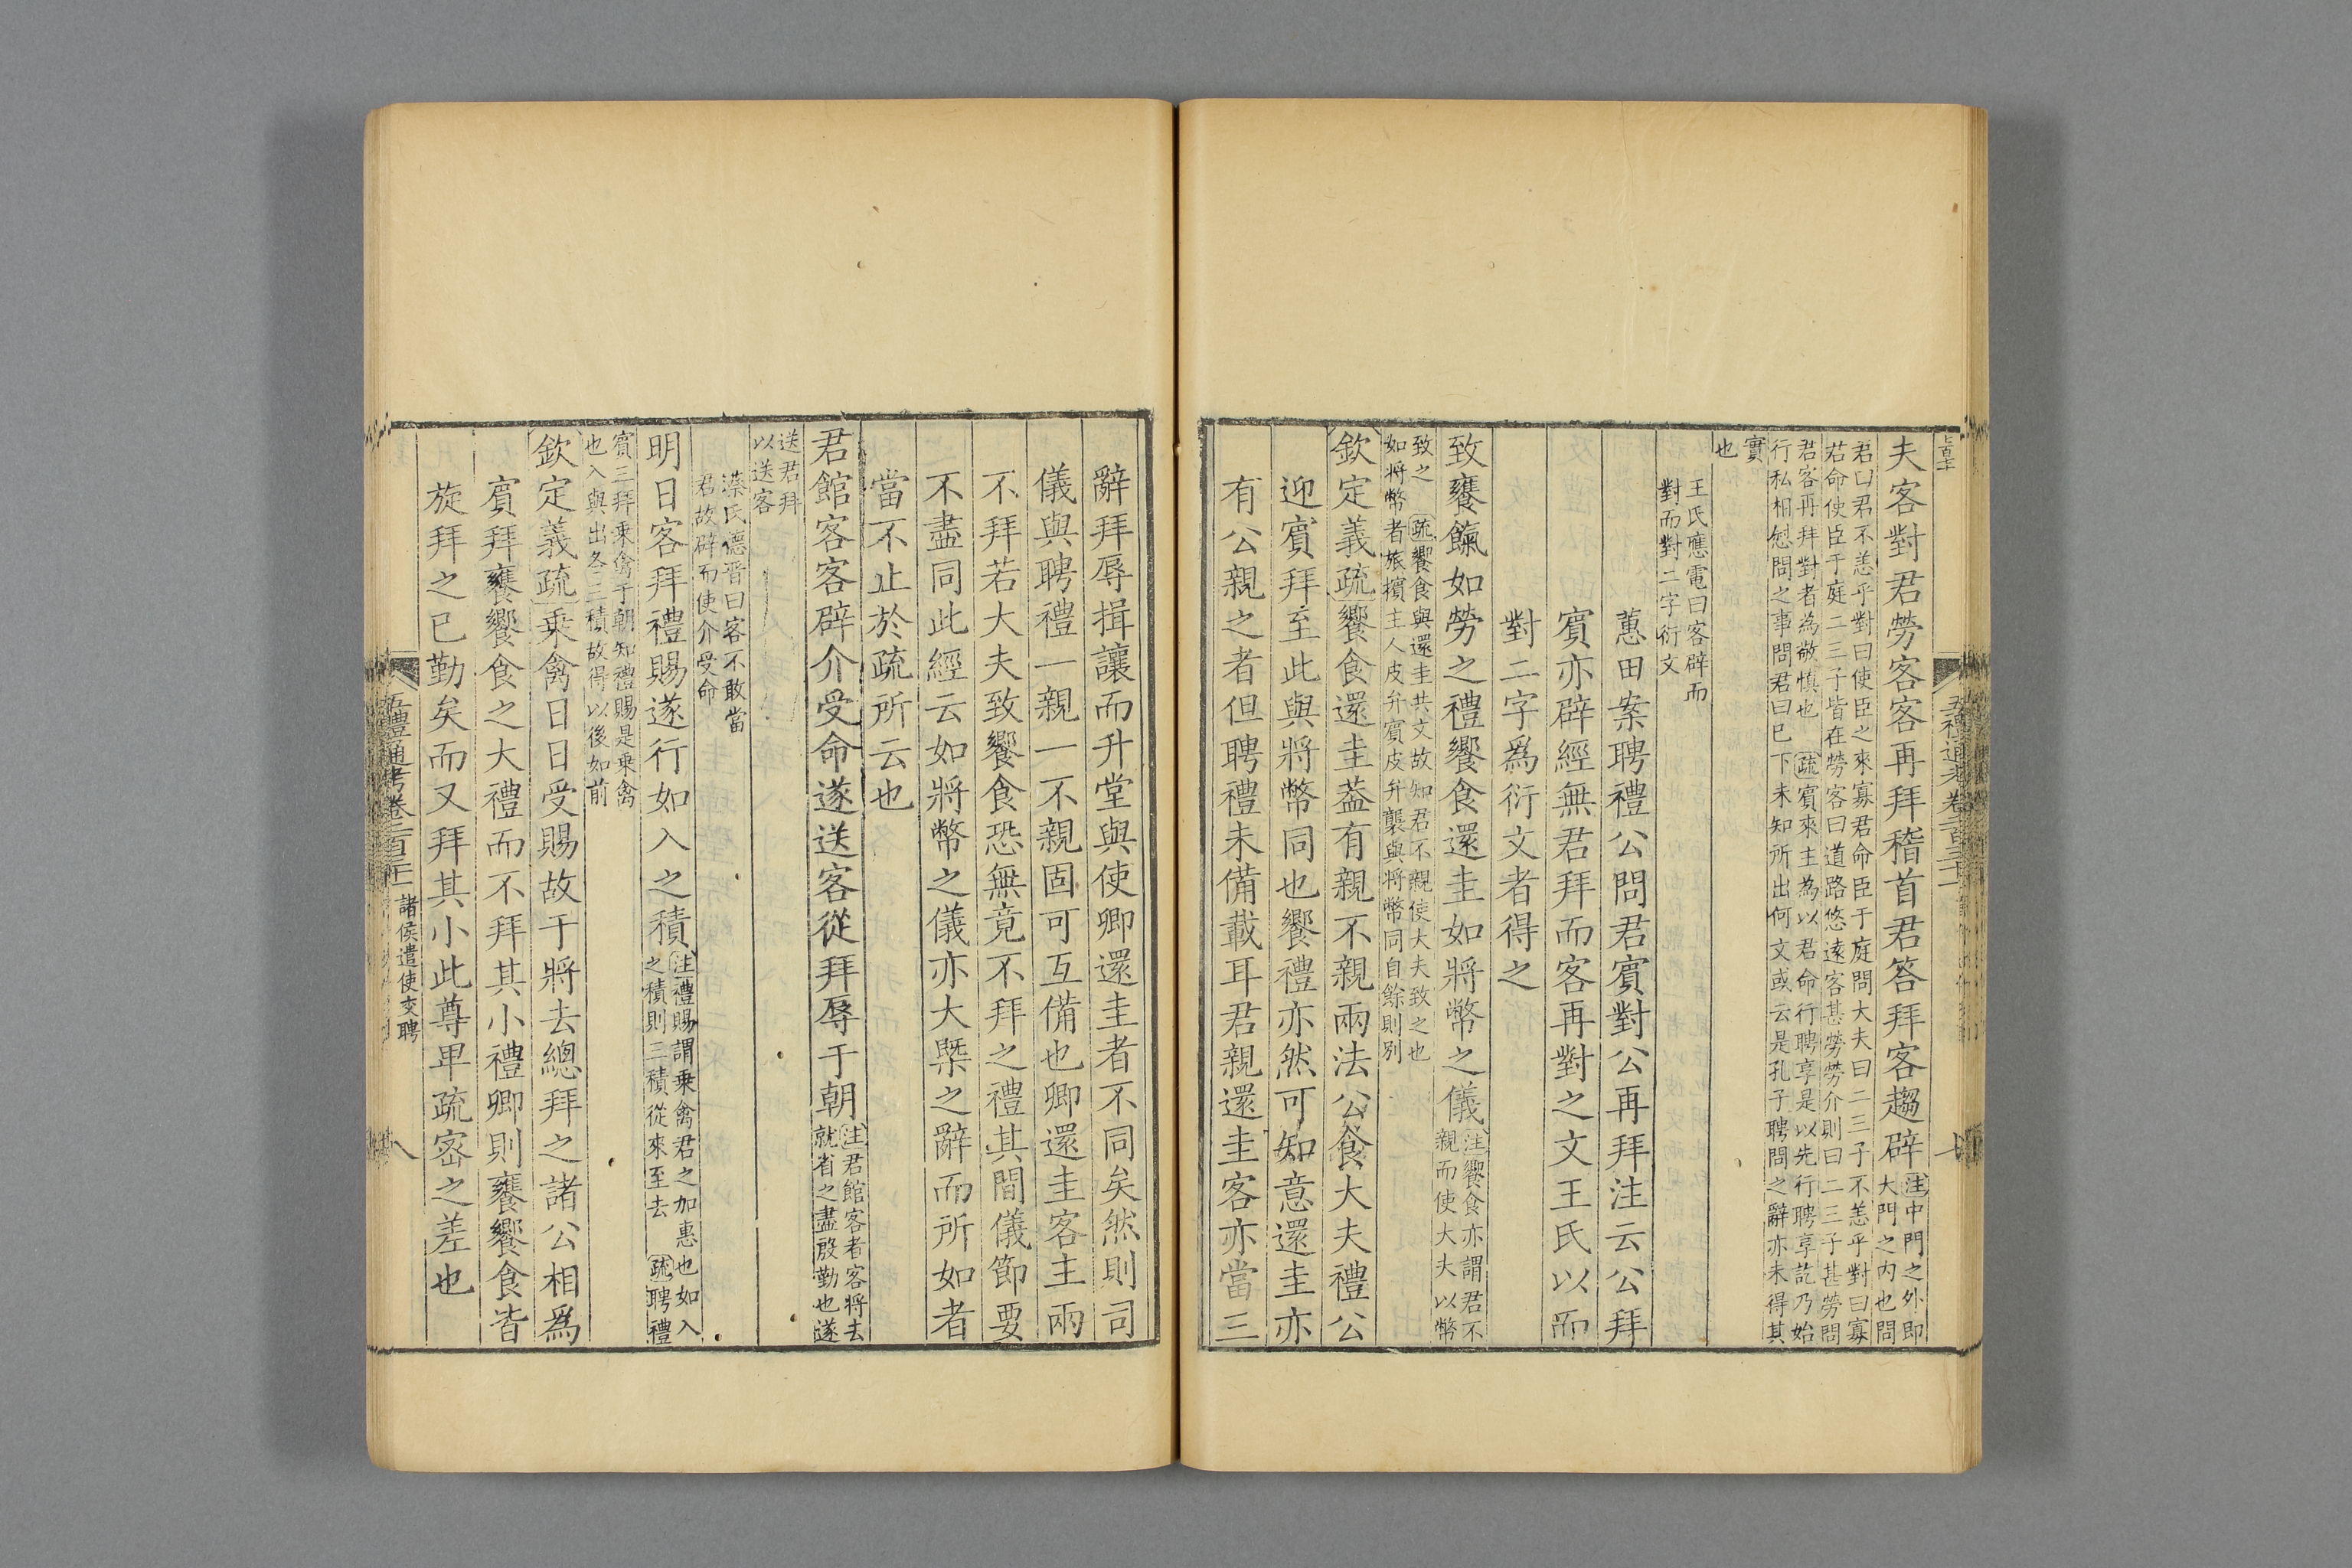 夫客對君勞客客再拜稽首君答拜客趨辟注中門之外即
大門之内也問
君曰君不恙乎對曰使臣之來寡君命臣于庭問大夫曰二三子不恙乎對曰寡
君命使臣于庭二三子皆在勞客曰道路悠遠客甚勞勞介則曰二三子甚勞問
君客再拜對者為敬慎也疏賓來主為以君命行聘享是以先行聘享訖乃始
行私相慰問之事問君曰已下未知所出何文或云是孔子聘問之辭亦未得其
實
也
王氏應電曰客辟而
對而對二字衍文
蕙田案聘禮公問君賓對公再拜注云公拜
賓亦辟經無君拜而客再對之文王氏以而
對二字爲衍文者得之
致饔餼如勞之禮饗食還圭如將幣之儀注饗食亦謂君不
親而使大夫以幣
致之疏饗食與還圭共文故知君不親使大夫致之也
如將幣者旅擯主人皮弁賓皮弁襲與將幣同自餘則别
欽定義疏饗食還圭葢有親不親兩法公食大夫禮公
迎賓拜至此與將幣同也饗禮亦然可知意還圭亦
有公親之者但聘禮未備載耳君親還圭客亦當三
辭拜辱揖讓而升堂與使卿還圭者不同矣然則司
儀與聘禮一親一不親固可互備也卿還圭客主兩
不拜若大夫致饗食恐無竟不拜之禮其間儀節要
不盡同此經云如將幣之儀亦大槩之辭而所如者
當不止於疏所云也
君館客客辟介受命遂送客從拜辱于朝注君館客者客將去
就省之盡殷勤也遂
送君拜
以送客
蔡氏德晋曰客不敢當
君故辟而使介受命
明日客拜禮賜遂行如入之積注禮賜謂乗禽君之加惠也如入
之積則三積從來至去疏聘禮
賓三拜乗禽于朝知禮賜是乗禽
也入與出各三積故得以後如前
欽定義疏乗禽日日受賜故于將去總拜之諸公相爲
賓拜饔饗食之大禮而不拜其小禮卿則饔饗食皆
旋拜之已勤矣而又拜其小此尊卑疏宻之差也
五禮通考卷二百三十一 諸侯遣使交聘
八